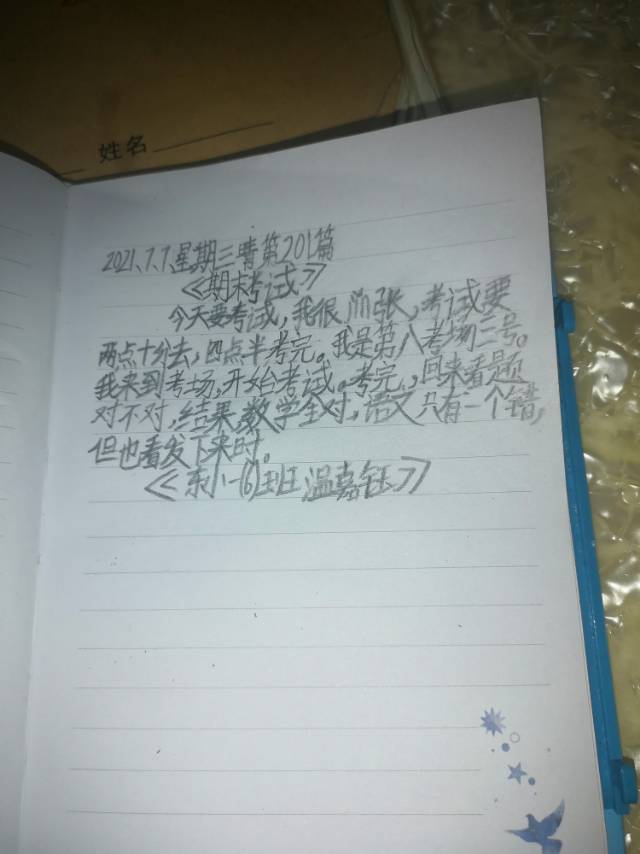 姓名
2021、7.7.星期三晴第201篇
《期末考试》
今天要考试,我很张,考试要
两点十分去,四点半考完。我是第八考场三号。
我来到考场,开始考试。考完,回来看题
对不对,结果,数学全对,语文只有一个错,
但也看发下来时。
《东小一(6)班温嘉钰》